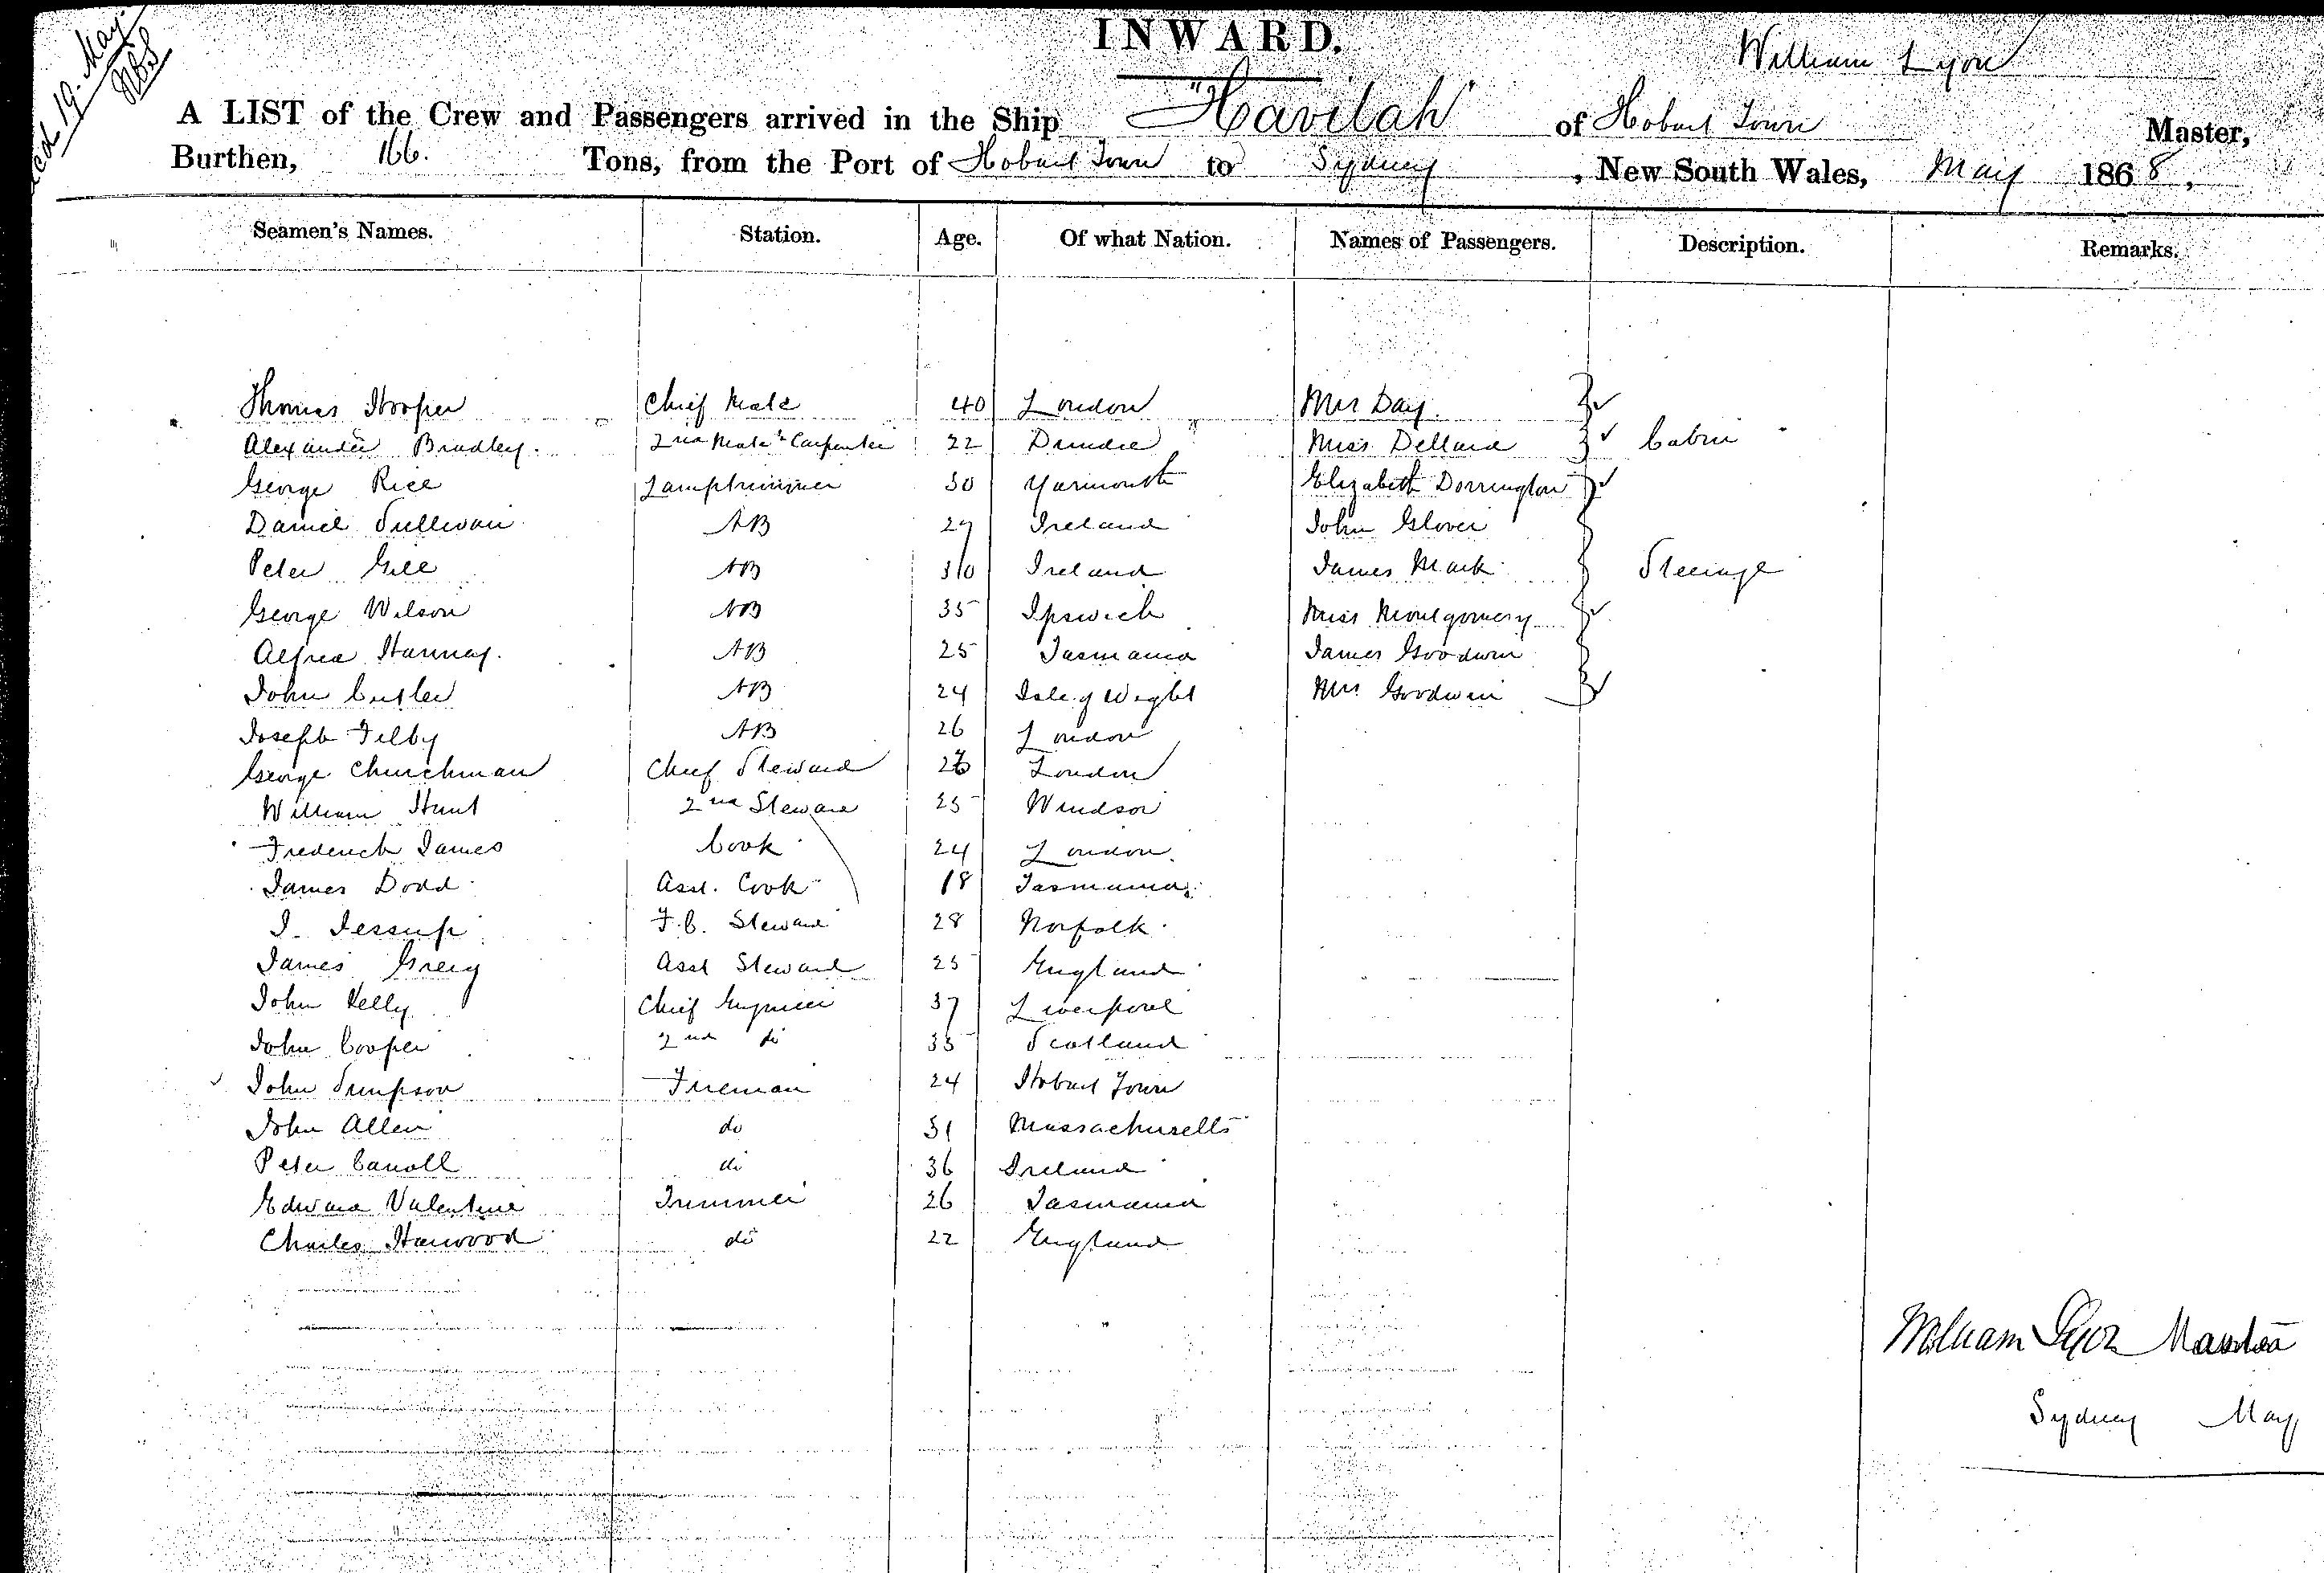 19. May.
INWARD.
William Lyon
A LIST of the Crew and Passengers arrived in the Ship "Havilah" of Hobart Town Master,
Burthen, 166. Tons, from the Port of Hobart Town to Sydney, New South Wales, May 1868.
Seamen's Names. Station. Age. Of what Nation. Names of Passengers. Description. Remarks.
Thomas Hooper Chief Mate 40 London Mrs Day.
Alexander Bradley. 2nd Mate & Carpenter 22 Dundee Miss Dellard Cabin
George Rice Lamptrimmer 30 Yarmouth Elizabeth Dorrington
Daniel Sullivan AB 29 Ireland John Glover
Peter Gill AB 30 Ireland James Mark
Steerage
George Wilson AB 35 Ipswich Miss Montgomery
Alfred Hannay. AB 25 Tasmania James Goodwin
John Cutler AB 24 Isle of Wight Mrs Goodwin
Joseph Filby AB 26 London
George Churchman Chief Steward London
William Hunt 2nd Steward 25 Windsor
Frederick James Cook 24 London.
James Dodd Asst. Cook 18 Tasmania
J. Jessup F.C. Steward 28 Norfolk
James Greig Asst Steward 25 England
John Kelly Chief Engineer 37 Liverpool
John Cooper 2nd do 35 Scotland
John Simpson Fireman 24 Hobart Town
John Allen do 31 Massachusetts
Peter Carroll do 36 Ireland
Edward Valentine Trimmer 26 Tasmania
Charles Harwood do 22 England
William Lyon Master
Sydney May